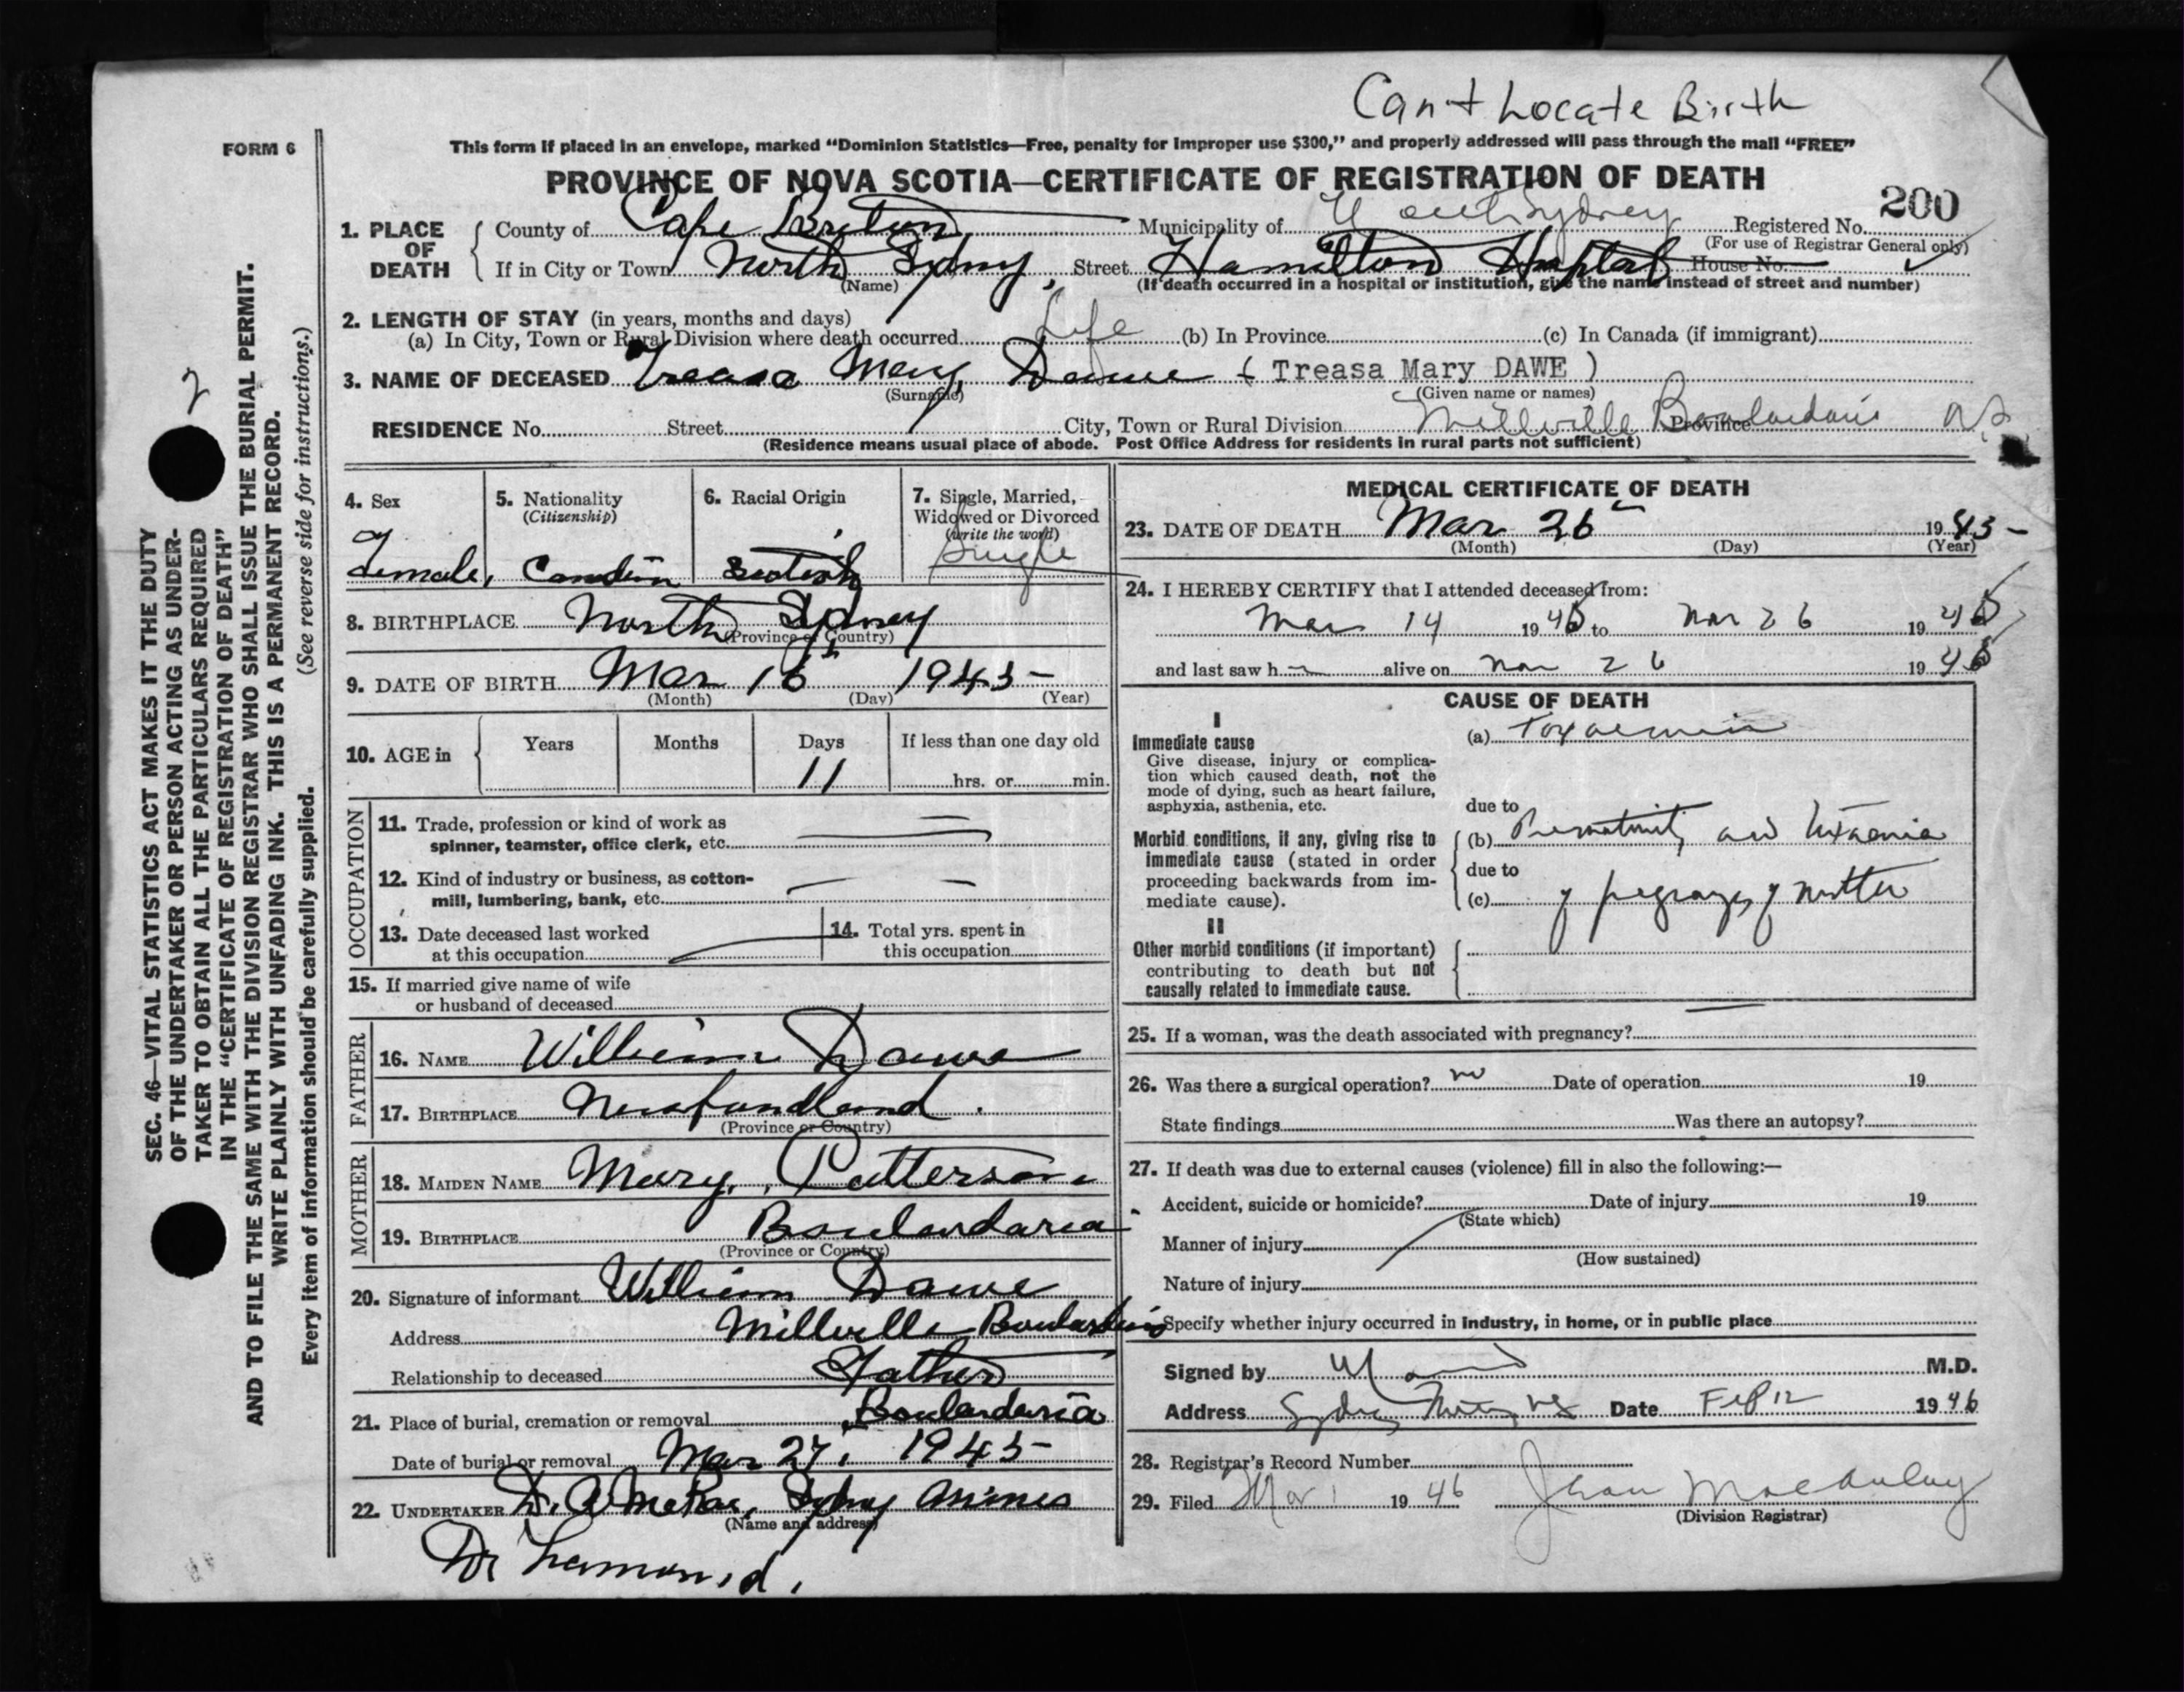 Can't Locate Birth
FORM 6
This form if placed in an envelope, marked “Dominion Statistics—Free, penalty for improper use $300,” and properly addressed will pass through the mail “FREE”
PROVINCE OF NOVA SCOTIA—CERTIFICATE OF REGISTRATION OF DEATH
200
1. PLACE OF DEATH
County of Cape Breton Municipality of North Sydney Registered No.
(For use of Registrar General only)
If in City or Town North Sydney, Street Hamilton Hospital House No.
(Name) (If death occurred in a hospital or institution, give the name instead of street and number)
2. LENGTH OF STAY (in years, months and days)
(a) In City, Town or Rural Division where death occurred Life (b) In Province (c) In Canada (if immigrant)
3. NAME OF DECEASED Treasa Mary Dawe ( Treasa Mary DAWE )
(Surname) (Given name or names)
RESIDENCE No. Street City, Town or Rural Division Millville Boulardarie Province N.S
(Residence means usual place of abode. Post Office Address for residents in rural parts not sufficient)
4. Sex
Female,
5. Nationality
(Citizenship)
6. Racial Origin
Scotish
7. Single, Married, Widowed or Divorced
(write the word)
Single
8. BIRTHPLACE North Sydney
(Province or Country)
9. DATE OF BIRTH Mar 16 1945
(Month) (Day) (Year)
10. AGE in Years Months Days If less than one day old
11 hrs. or min.
OCCUPATION
11. Trade, profession or kind of work as
spinner, teamster, office clerk, etc.
12. Kind of industry or business, as cotton-
mill, lumbering, bank, etc.
13. Date deceased last worked
at this occupation
14. Total yrs. spent in
this occupation
15. If married give name of wife
or husband of deceased
FATHER
16. NAME William Dawe
17. BIRTHPLACE Newfundland.
(Province or Country)
MOTHER
18. MAIDEN NAME Mary Patterson
19. BIRTHPLACE Boulardaria
(Province or Country)
20. Signature of informant William Dawe
Address Millville Boulardaria
Relationship to deceased Father
21. Place of burial, cremation or removal Boulardaria
Date of burial or removal Mar 27, 1945
22. UNDERTAKER D. A McRae, Sydney Mines
(Name and address)
MEDICAL CERTIFICATE OF DEATH
23. DATE OF DEATH Mar 26 1945
(Month) (Day) (Year)
24. I HEREBY CERTIFY that I attended deceased from:
Mar 14 1945 to Mar 26 1945
and last saw h alive on Mar 26 1945
CAUSE OF DEATH
I
Immediate cause
Give disease, injury or complica-
tion which caused death, not the
mode of dying, such as heart failure,
asphyxia, asthenia, etc.
(a) Toxaemia
due to
Morbid conditions, if any, giving rise to
immediate cause (stated in order
proceeding backwards from im-
mediate cause).
(b) Prematurity and toxaemia
due to
(c) of pregnancy of mother
II
Other morbid conditions (if important)
contributing to death but not
causally related to immediate cause.
25. If a woman, was the death associated with pregnancy?
26. Was there a surgical operation? no Date of operation 19
State findings Was there an autopsy?
27. If death was due to external causes (violence) fill in also the following:—
Accident, suicide or homicide? Date of injury 19
(State which)
Manner of injury
(How sustained)
Nature of injury
Specify whether injury occurred in industry, in home, or in public place
Signed by M.D.
Address Sydney Mines NS Date Feb 12 1946
28. Registrar's Record Number
29. Filed Mar 1 1946 Jean MacAulay
(Division Registrar)
2
SEC. 46—VITAL STATISTICS ACT MAKES IT THE DUTY
OF THE UNDERTAKER OR PERSON ACTING AS UNDER-
TAKER TO OBTAIN ALL THE PARTICULARS REQUIRED
IN THE “CERTIFICATE OF REGISTRATION OF DEATH”
AND TO FILE THE SAME WITH THE DIVISION REGISTRAR WHO SHALL ISSUE THE BURIAL PERMIT.
WRITE PLAINLY WITH UNFADING INK. THIS IS A PERMANENT RECORD.
Every item of information should be carefully supplied. (See reverse side for instructions.)